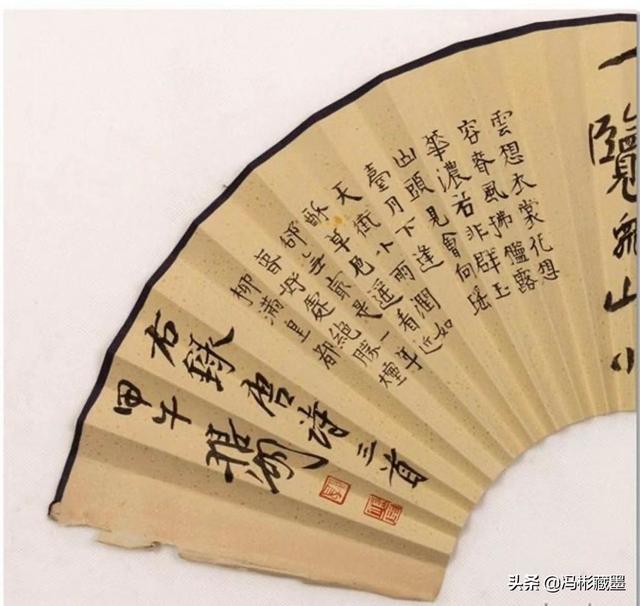 一覽衆山小
雲想衣裳花想
容春風拂檻露
華濃若非群玉
山頭見會向瑤
臺月下逢
天街小雨潤如
酥草色遥看近
卻無最是一年
春好處絕勝煙
柳滿皇都
右錄唐詩三首
甲午
头条 @冯彬藏墨